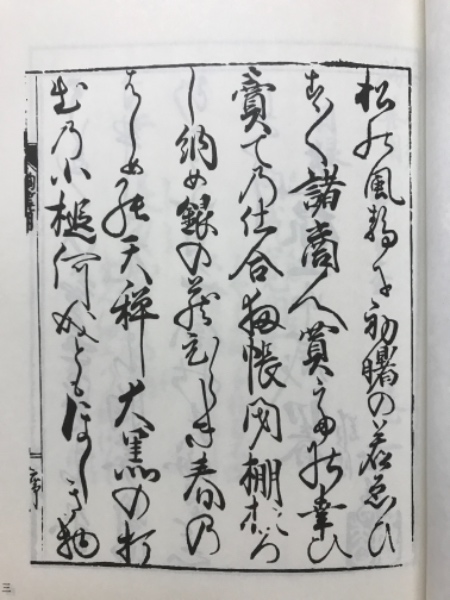 松の風静に初曙の若ゑひ
す〳〵諸商人買ての幸ひ
賣ての仕合扨帳閉棚おろ
し納め銀の蔵ひらき春の
はしめの天秤大黒の打
出の小槌何成ともほしき物
序
三